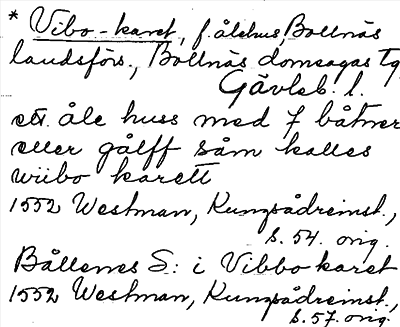 * Vibo-karet, f. ålehus, Bollnäs
landsförs., Bollnäs domsagas Tg
Gävleb. l.
ett åle huss med 7 båtner
eller gålff såm kalles
wiibo karett
1552 Westman, Kungsådreinst.,
s. 54. orig.
Bållenes S: i Vibbo karet
1552 Westman, Kungsådreinst.,
s. 57. orig.